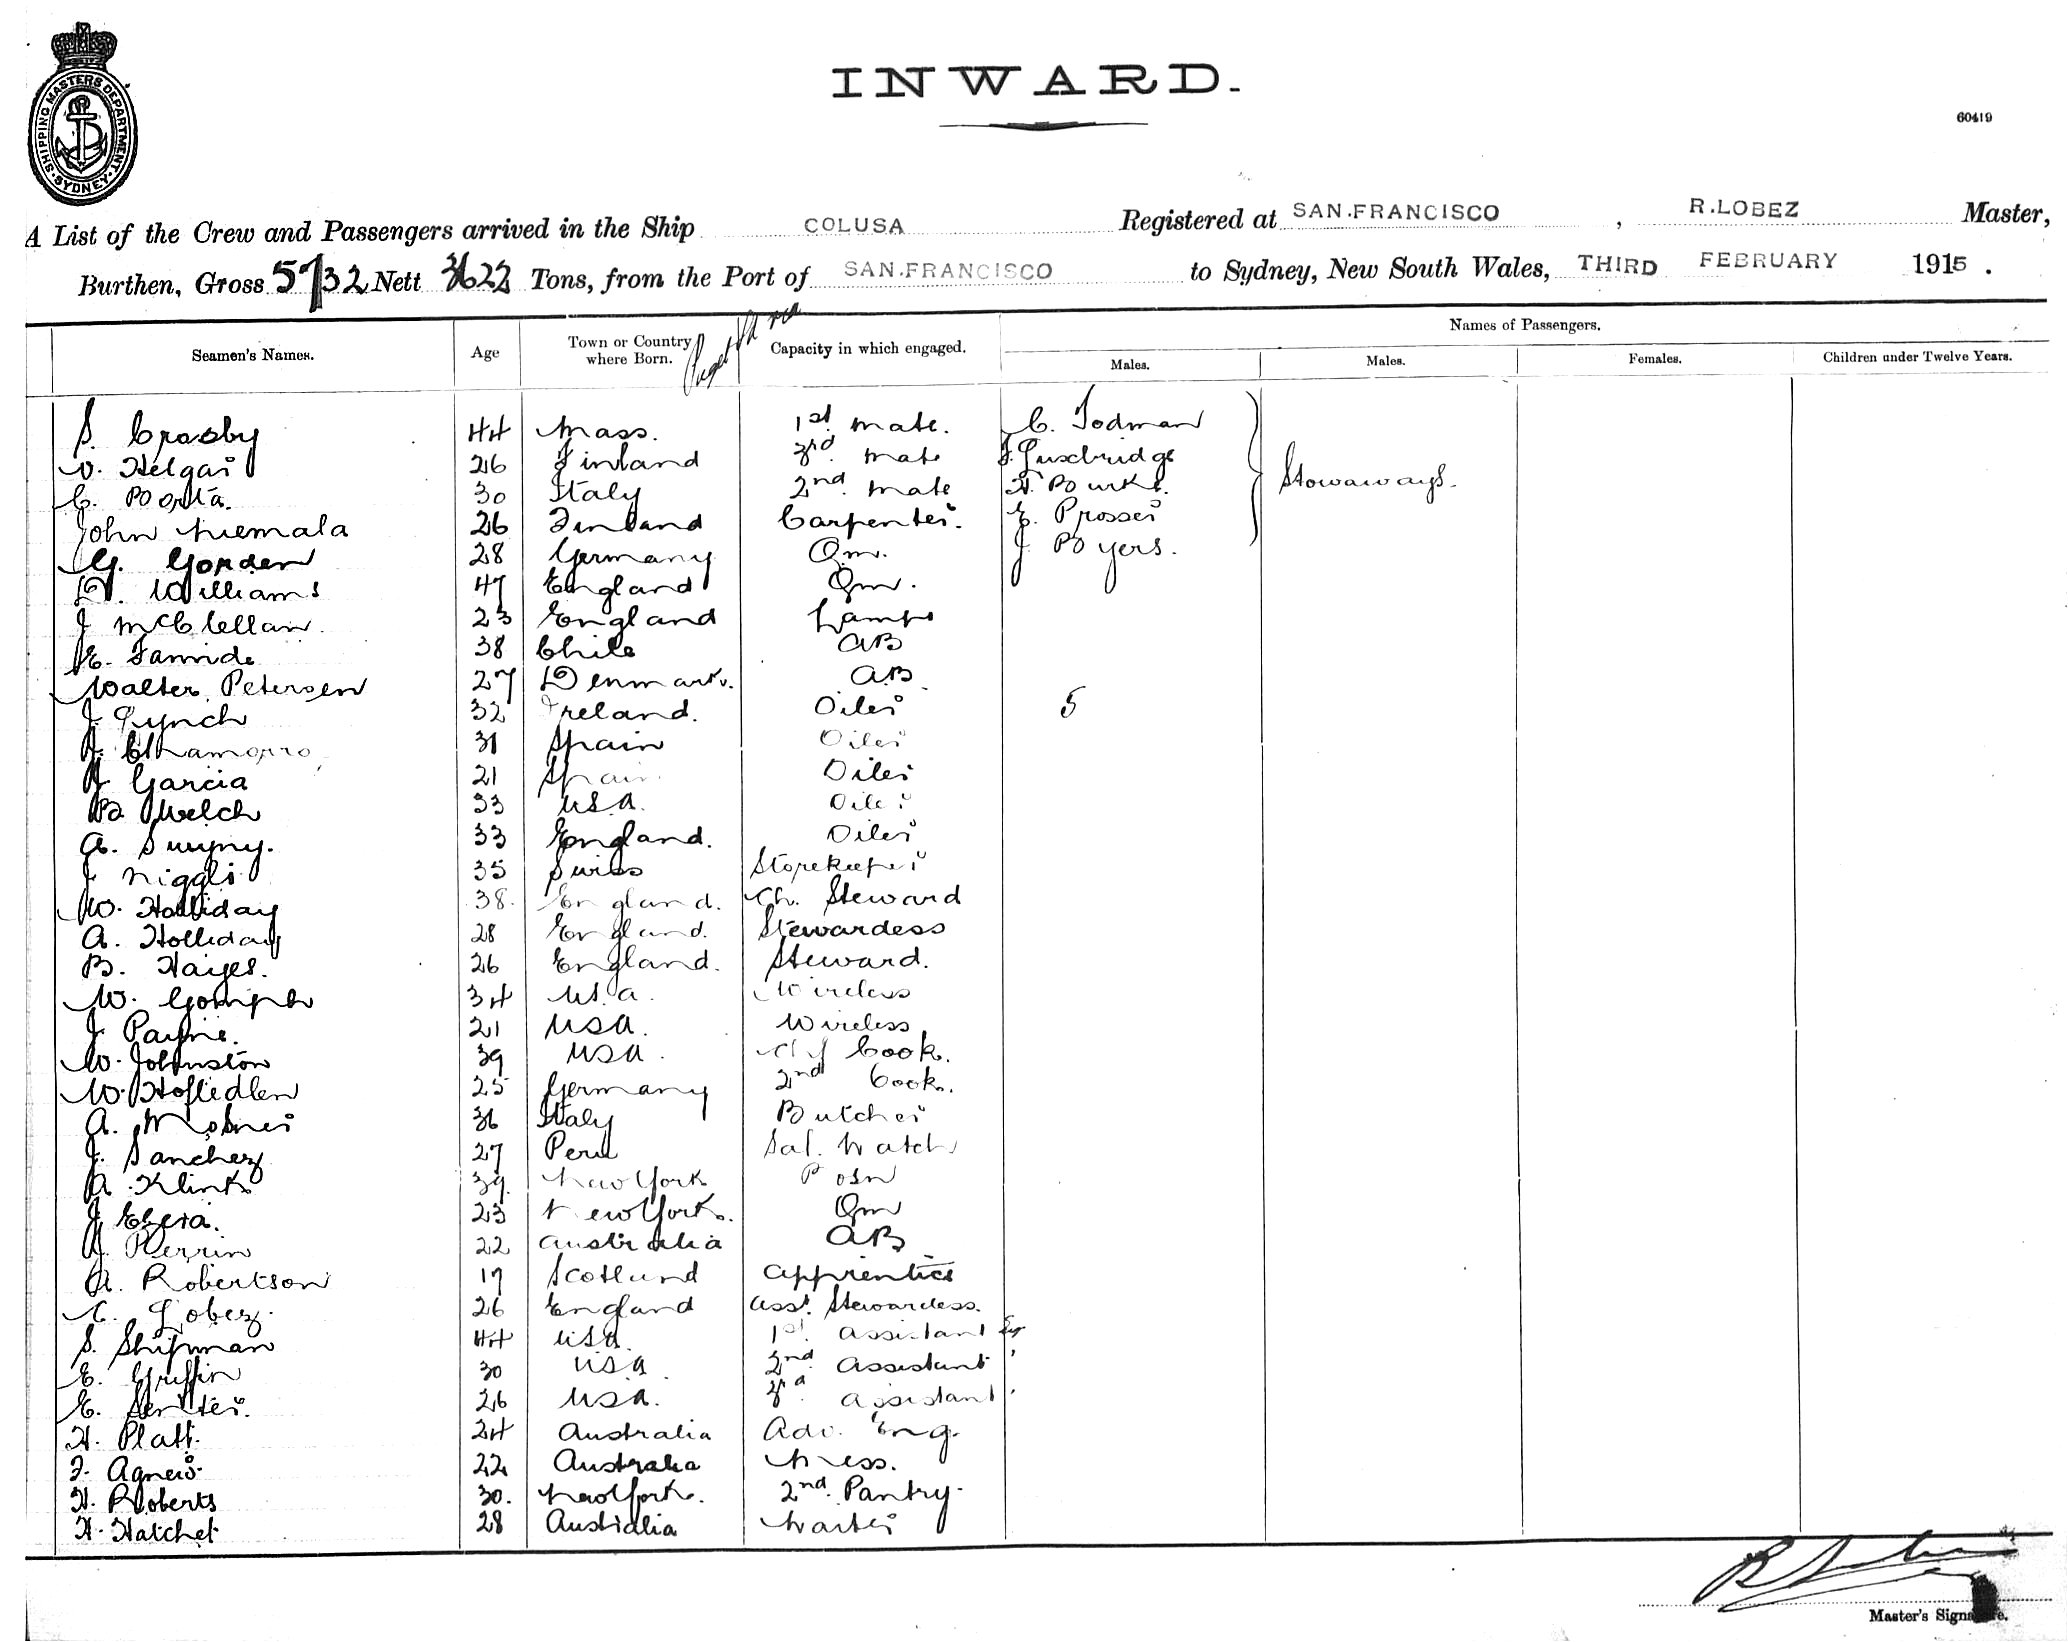 INWARD.
60419
SHIPPING MASTERS DEPARTMENT. SYDNEY.
A List of the Crew and Passengers arrived in the Ship COLUSA Registered at SAN.FRANCISCO, R.LOBEZ Master,
Burthen, Gross 5732 Nett 3622 Tons, from the Port of SAN.FRANCISCO to Sydney, New South Wales, THIRD FEBRUARY 1915.
Names of Passengers.
Seamen's Names. Age Town or Country where Born. Capacity in which engaged. Males. Males. Females. Children under Twelve Years.
S. Crosby 44 Mass. 1st. Mate. C. Todman
V. Helgar 26 Finland 3rd. Mate F. Luxbridge
C. Porta. 30 Italy 2nd. Mate H. Burke. Stowaways.
John Niemala 26 Finland Carpenter. E. Prosser
G. Gorden 28 Germany Qm. J. Byers.
D. Williams 47 England Qm.
J McClellan. 23 England Lamps
E. 38 Chile AB
Walter Petersen 27 Denmark. AB
J. Lynch 32 Ireland. Oiler 5
J. Chamorro 31 Spain Oiler
J Garcia 21 Spain Oiler
B Welch 33 USA. Oiler
A. 33 England. Oiler
J Niggli 35 Swiss Storekeeper
W. Holliday 38. England. Ch. Steward
A. Holliday 28 England. Stewardess
B. Hayes. 26 England. Steward.
W. 34 U.S.A. Wireless
J Payne. 21 USA. Wireless
W. Johnston 39 USA. Chf Cook.
W. 25 Germany 2nd Cook.
A. 36 Italy Butcher
J. Sanchez 27 Peru Sal. Watch
A. Klink 39. New York Bosn
J 23 New York. Qm
J. Perrin 22 Australia AB
A. Robertson 17 Scotland Apprentice
C. Lobez. 26 England Asst. Stewardess.
S. Shipman 44 USA. 1st. Assistant Eng
E. Griffin 30 USA. 2nd. Assistant "
E. Senter. 26 USA. 3rd. Assistant "
H. Platt. 24 Australia Adv. Eng.
F. Agnew. 22 Australia Mess.
H. Roberts 30. New York. 2nd. Pantry.
H. Hatchet 28 Australia Waiter
Master's Signature.